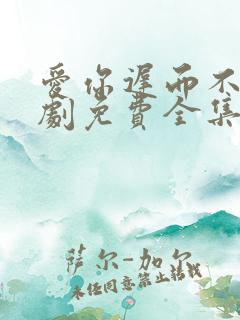 愛你遲而不
劇免費全集
萨尔-加尔
未经同意禁止转载